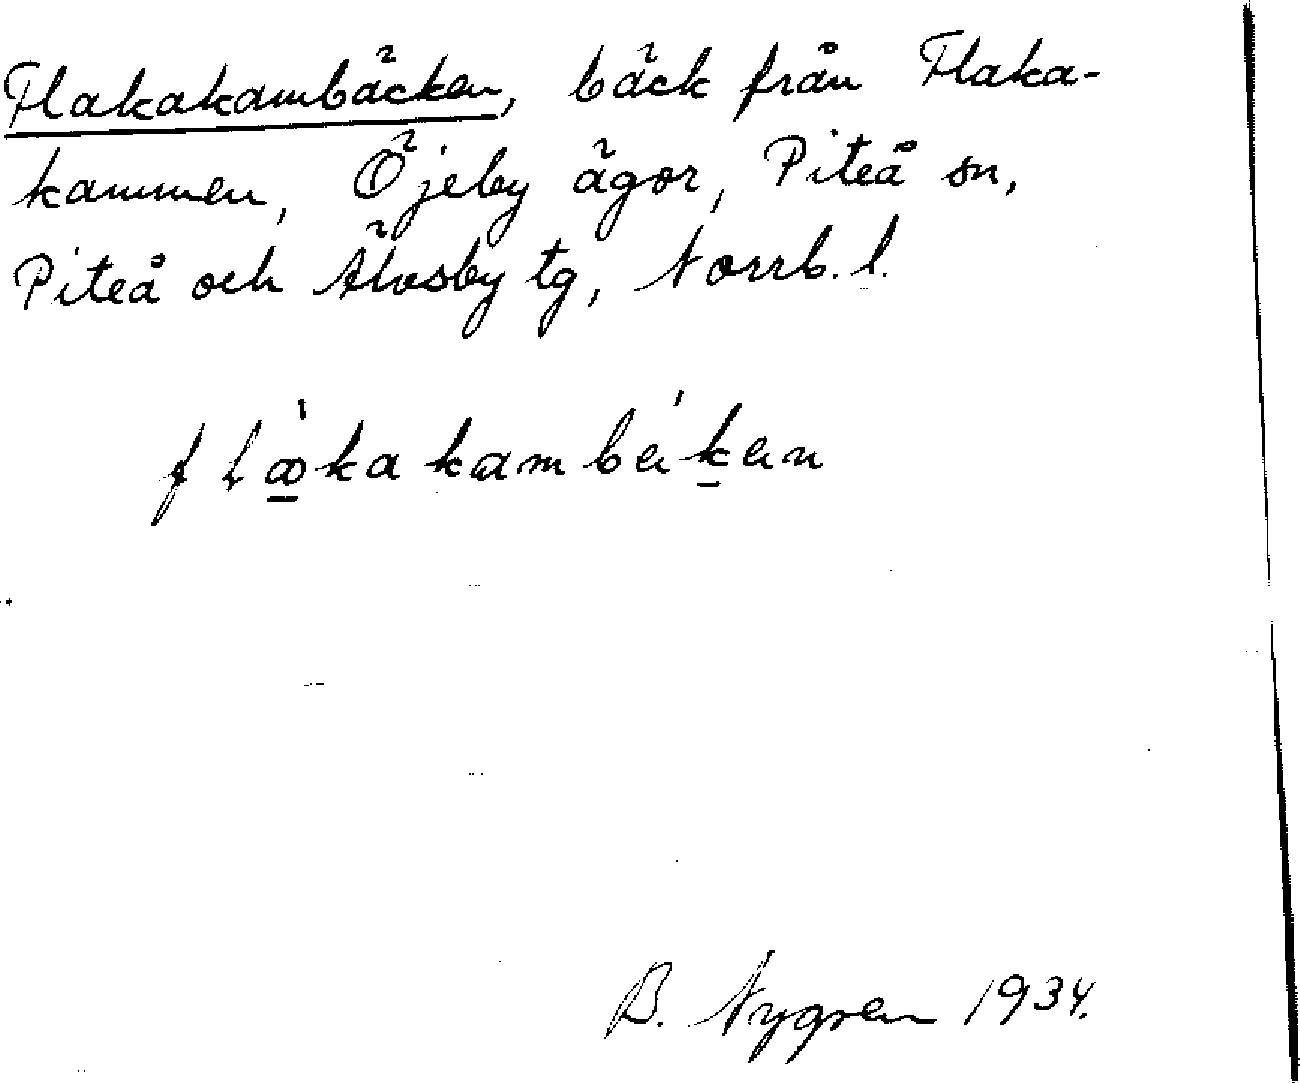 Flakakambäcken, bäck från Flaka-
kammen, Öjeby ägor, Piteå sn,
Piteå och Älvsby tg, Norrb. l.
B. Nygren 1934.